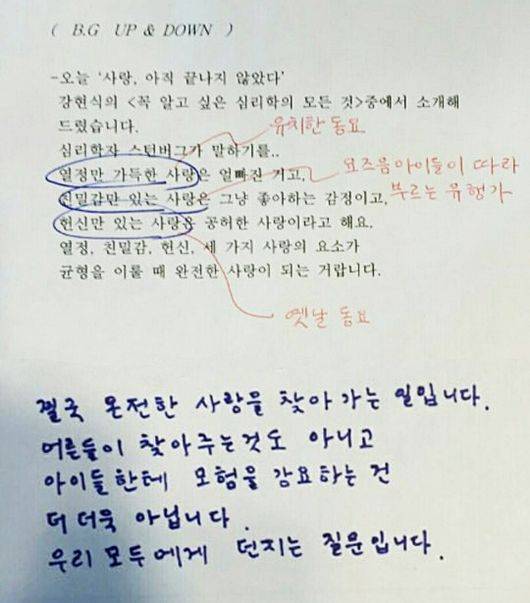 ( B.G UP & DOWN )
-오늘 '사랑, 아직 끝나지 않았다'
강현식의 <꼭 알고 싶은 심리학의 모든 것>중에서 소개해
드렸습니다.
유치한 동요
심리학자 스턴버그가 말하기를..
열정만 가득한 사랑은 얼빠진 거고,
요즈음아이들이 따라
부르는 유행가
친밀감만 있는 사랑은 그냥 좋아하는 감정이고,
헌신만 있는 사랑은 공허한 사랑이라고 해요.
열정, 친밀감, 헌신, 세 가지 사랑의 요소가
균형을 이룰 때 완전한 사랑이 되는 거랍니다.
옛날 동요
결국 온전한 사랑을 찾아 가는 일입니다.
어른들이 찾아주는것도 아니고
아이들한테 모험을 강요하는 건
더 더욱 아닙니다.
우리 모두에게 던지는 질문입니다.